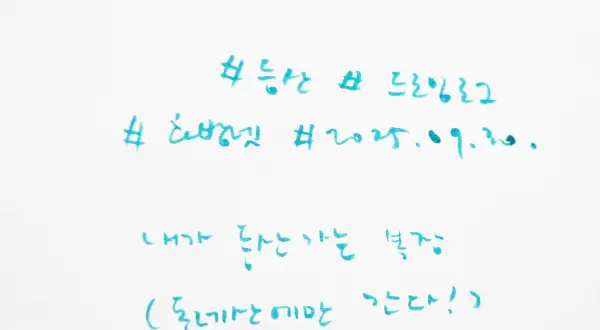 #등산 # 드로잉로그
# 천방넷 #2025.09.30.
내가 등산가는 복장
(동네산에만 간다!)